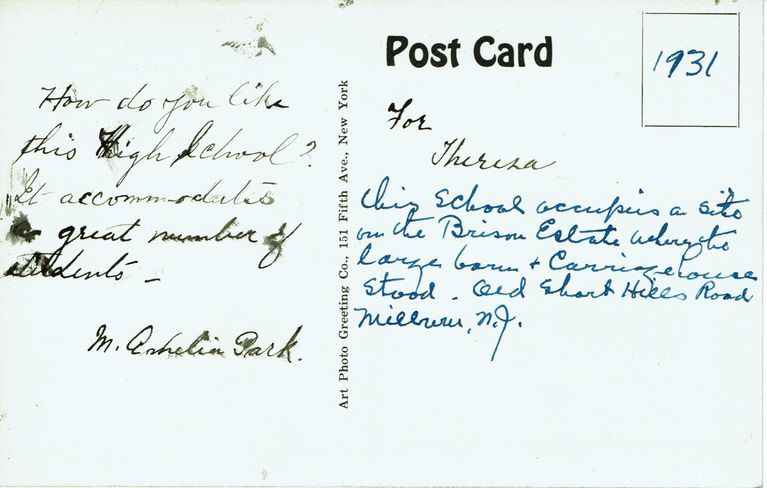 How do you like
this High School?
It accommodates
a great number of
students –
M. Amelia Park.
Art Photo Greeting Co., 151 Fifth Ave., New York
Post Card
1931
For
Theresa
this school occupies a site
on the Brison Estate where the
large barn + Carriage house
stood. Old Short Hills Road
Millburn, N.J.